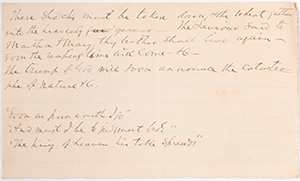 These Shocks must be taken down, & the wheat gotten
into the heavenly garner — The Saviour said to
Martha & Mary thy brother shall live again —
soon the reaping time will come — &c —
The trump of God will soon announce the catastro-
phe of nature &c.
"Soon as from earth I go"
"And must I be to judgment
"The King of heaven his table spreads"